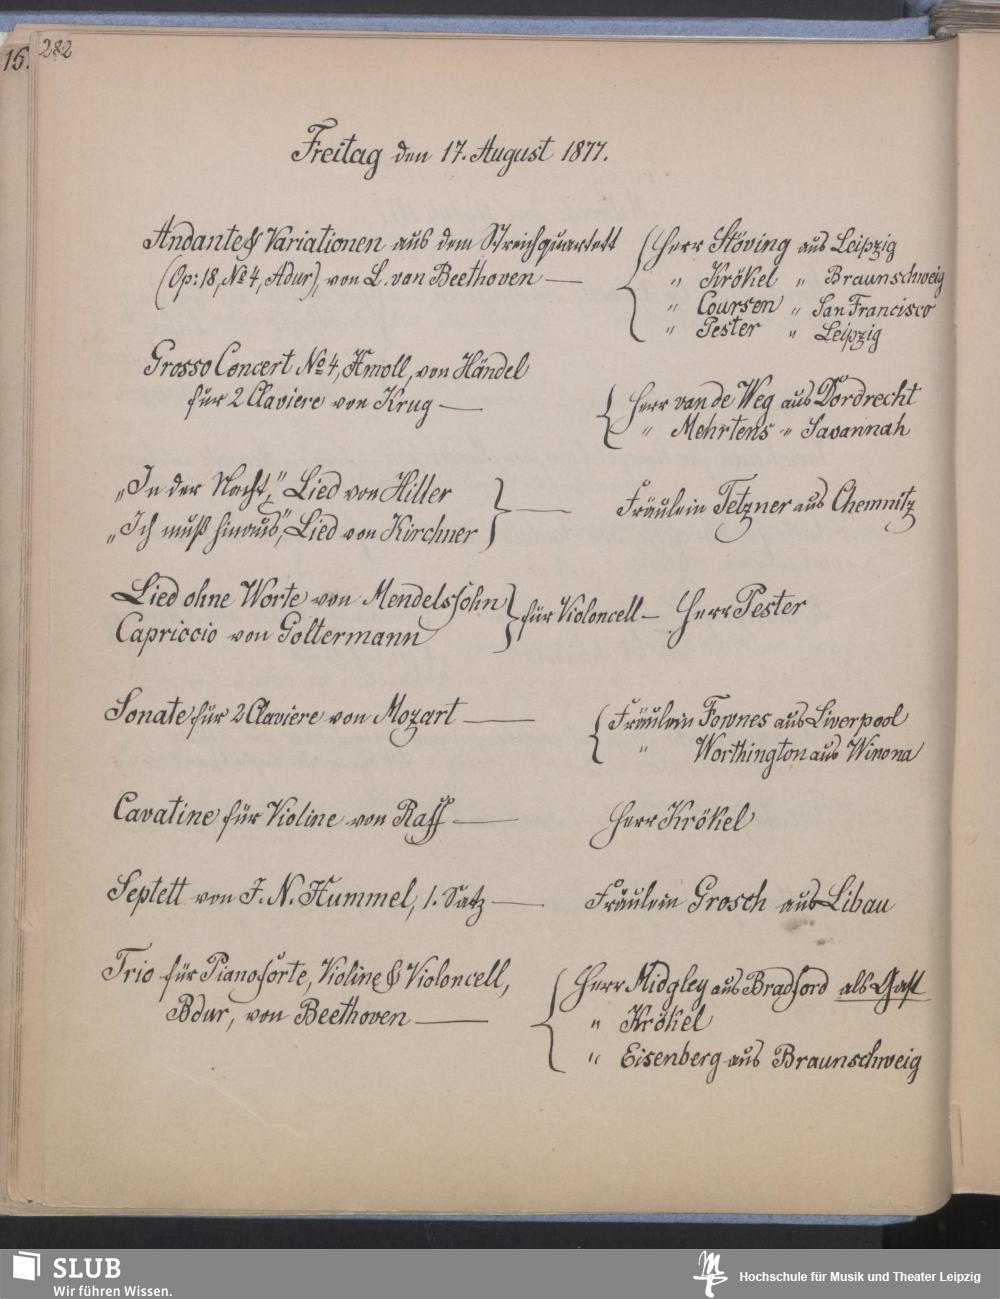 15.
282
Freitag den 17. August 1877.
Andante & Variationen aus dem Streichquartett { Herr Stöving aus Leipzig
(Op: 18, № 4, Adur), von L. van Beethoven — " Krökel " Braunschweig
" Coursen " San Francisco
" Pester " Leipzig
Grosso Concert № 4, Hmoll, von Händel
für 2 Claviere von Krug — { Herr van de Weg aus Dordrecht
" Mehrtens " Savannah
„In der Nacht," Lied von Hiller } — Fräulein Tetzner aus Chemnitz
„Ich muß hinaus", Lied von Kirchner
Lied ohne Worte von Mendelssohn } für Violoncell — Herr Pester
Capriccio von Goltermann
Sonate für 2 Claviere von Mozart — { Fräulein Fownes aus Liverpool
" Worthington aus Winona
Cavatine für Violine von Raff — Herr Krökel
Septett von J. N. Hummel, 1. Satz — Fräulein Grosch aus Libau
Trio für Pianoforte, Violine & Violoncell, { Herr Midgley aus Bradford als Gast
Bdur, von Beethoven — " Krökel
" Eisenberg aus Braunschweig
SLUB
Wir führen Wissen.
Hochschule für Musik und Theater Leipzig